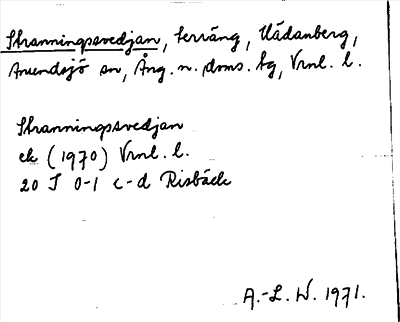 Stranningssvedjan, terräng, Kådanberg,
Anundsjö sn, Ång. n. doms. bg, Vrnl. l.
Stranningssvedjan
ek (1970) Vrnl. l.
20 I 0-1 c-d Risbäck
A.-L. W. 1971.